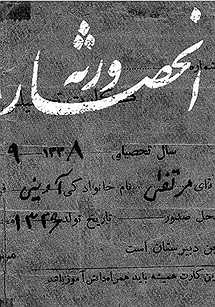 انحصار ورثه
سال تحصیلی ۱۳۳۸ ۹
آقای مرتضی نام خانوادگی آوینی
محل صدور تاریخ تولد ۱۳۲۶
این دبیرستان است
این کارت همیشه باید همراه دانش آموز باشد